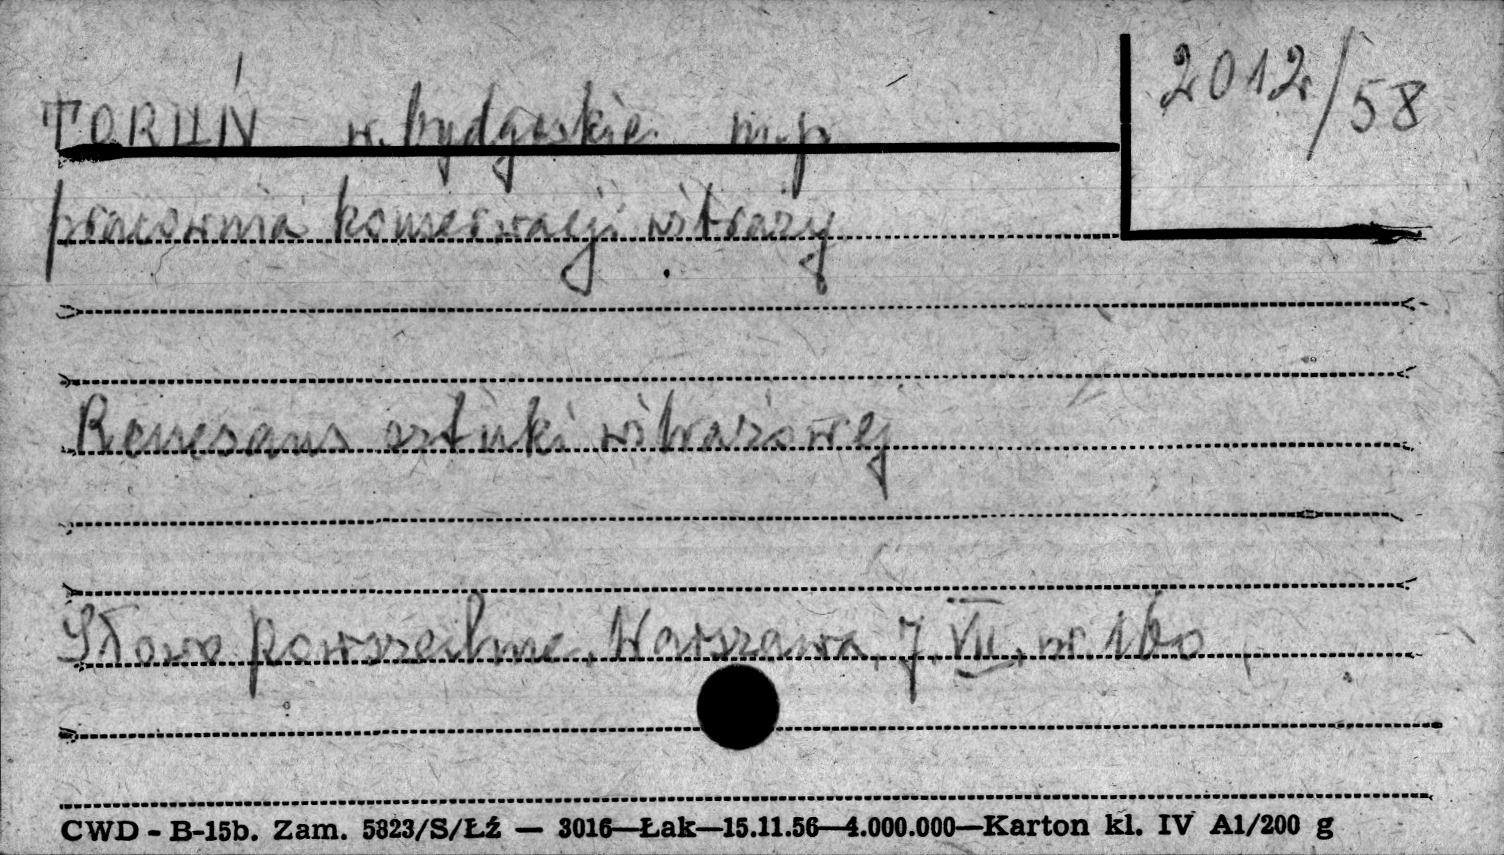 TORUŃ w. bydgoskie m.p. 2012/58
pracownia konserwacji witraży
Renesans sztuki witrażowej
Słowo powszechne, Warszawa, 7.VII, nr 160
CWD - B-15b. Zam. 5823/S/Łź — 3016—Łak—15.11.56—4.000.000—Karton kl. IV A1/200 g